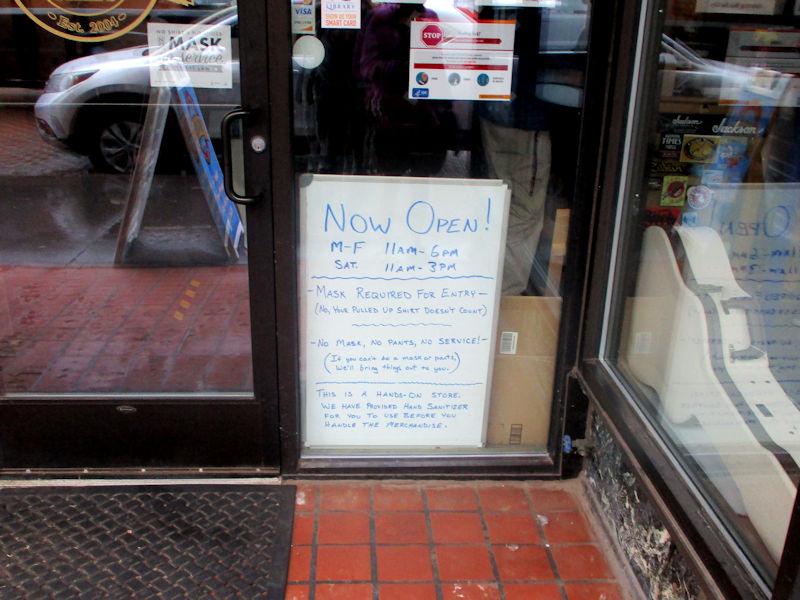 Est. 2004
MASK
VISA
LIBRARY
SHOW US YOUR
SMART CARD
STOP
CDC
NOW OPEN!
M-F 11AM-6PM
SAT. 11AM-3PM
-MASK REQUIRED FOR ENTRY-
(NO, YOUR PULLED UP SHIRT DOESN'T COUNT)
-NO MASK, NO PANTS, NO SERVICE!-
We'll bring things out to you.)
THIS IS A HANDS-ON STORE.
WE HAVE PROVIDED HAND SANITIZER
FOR YOU TO USE BEFORE YOU
HANDLE THE MERCHANDISE.
Jackson
Jackson
TIMES